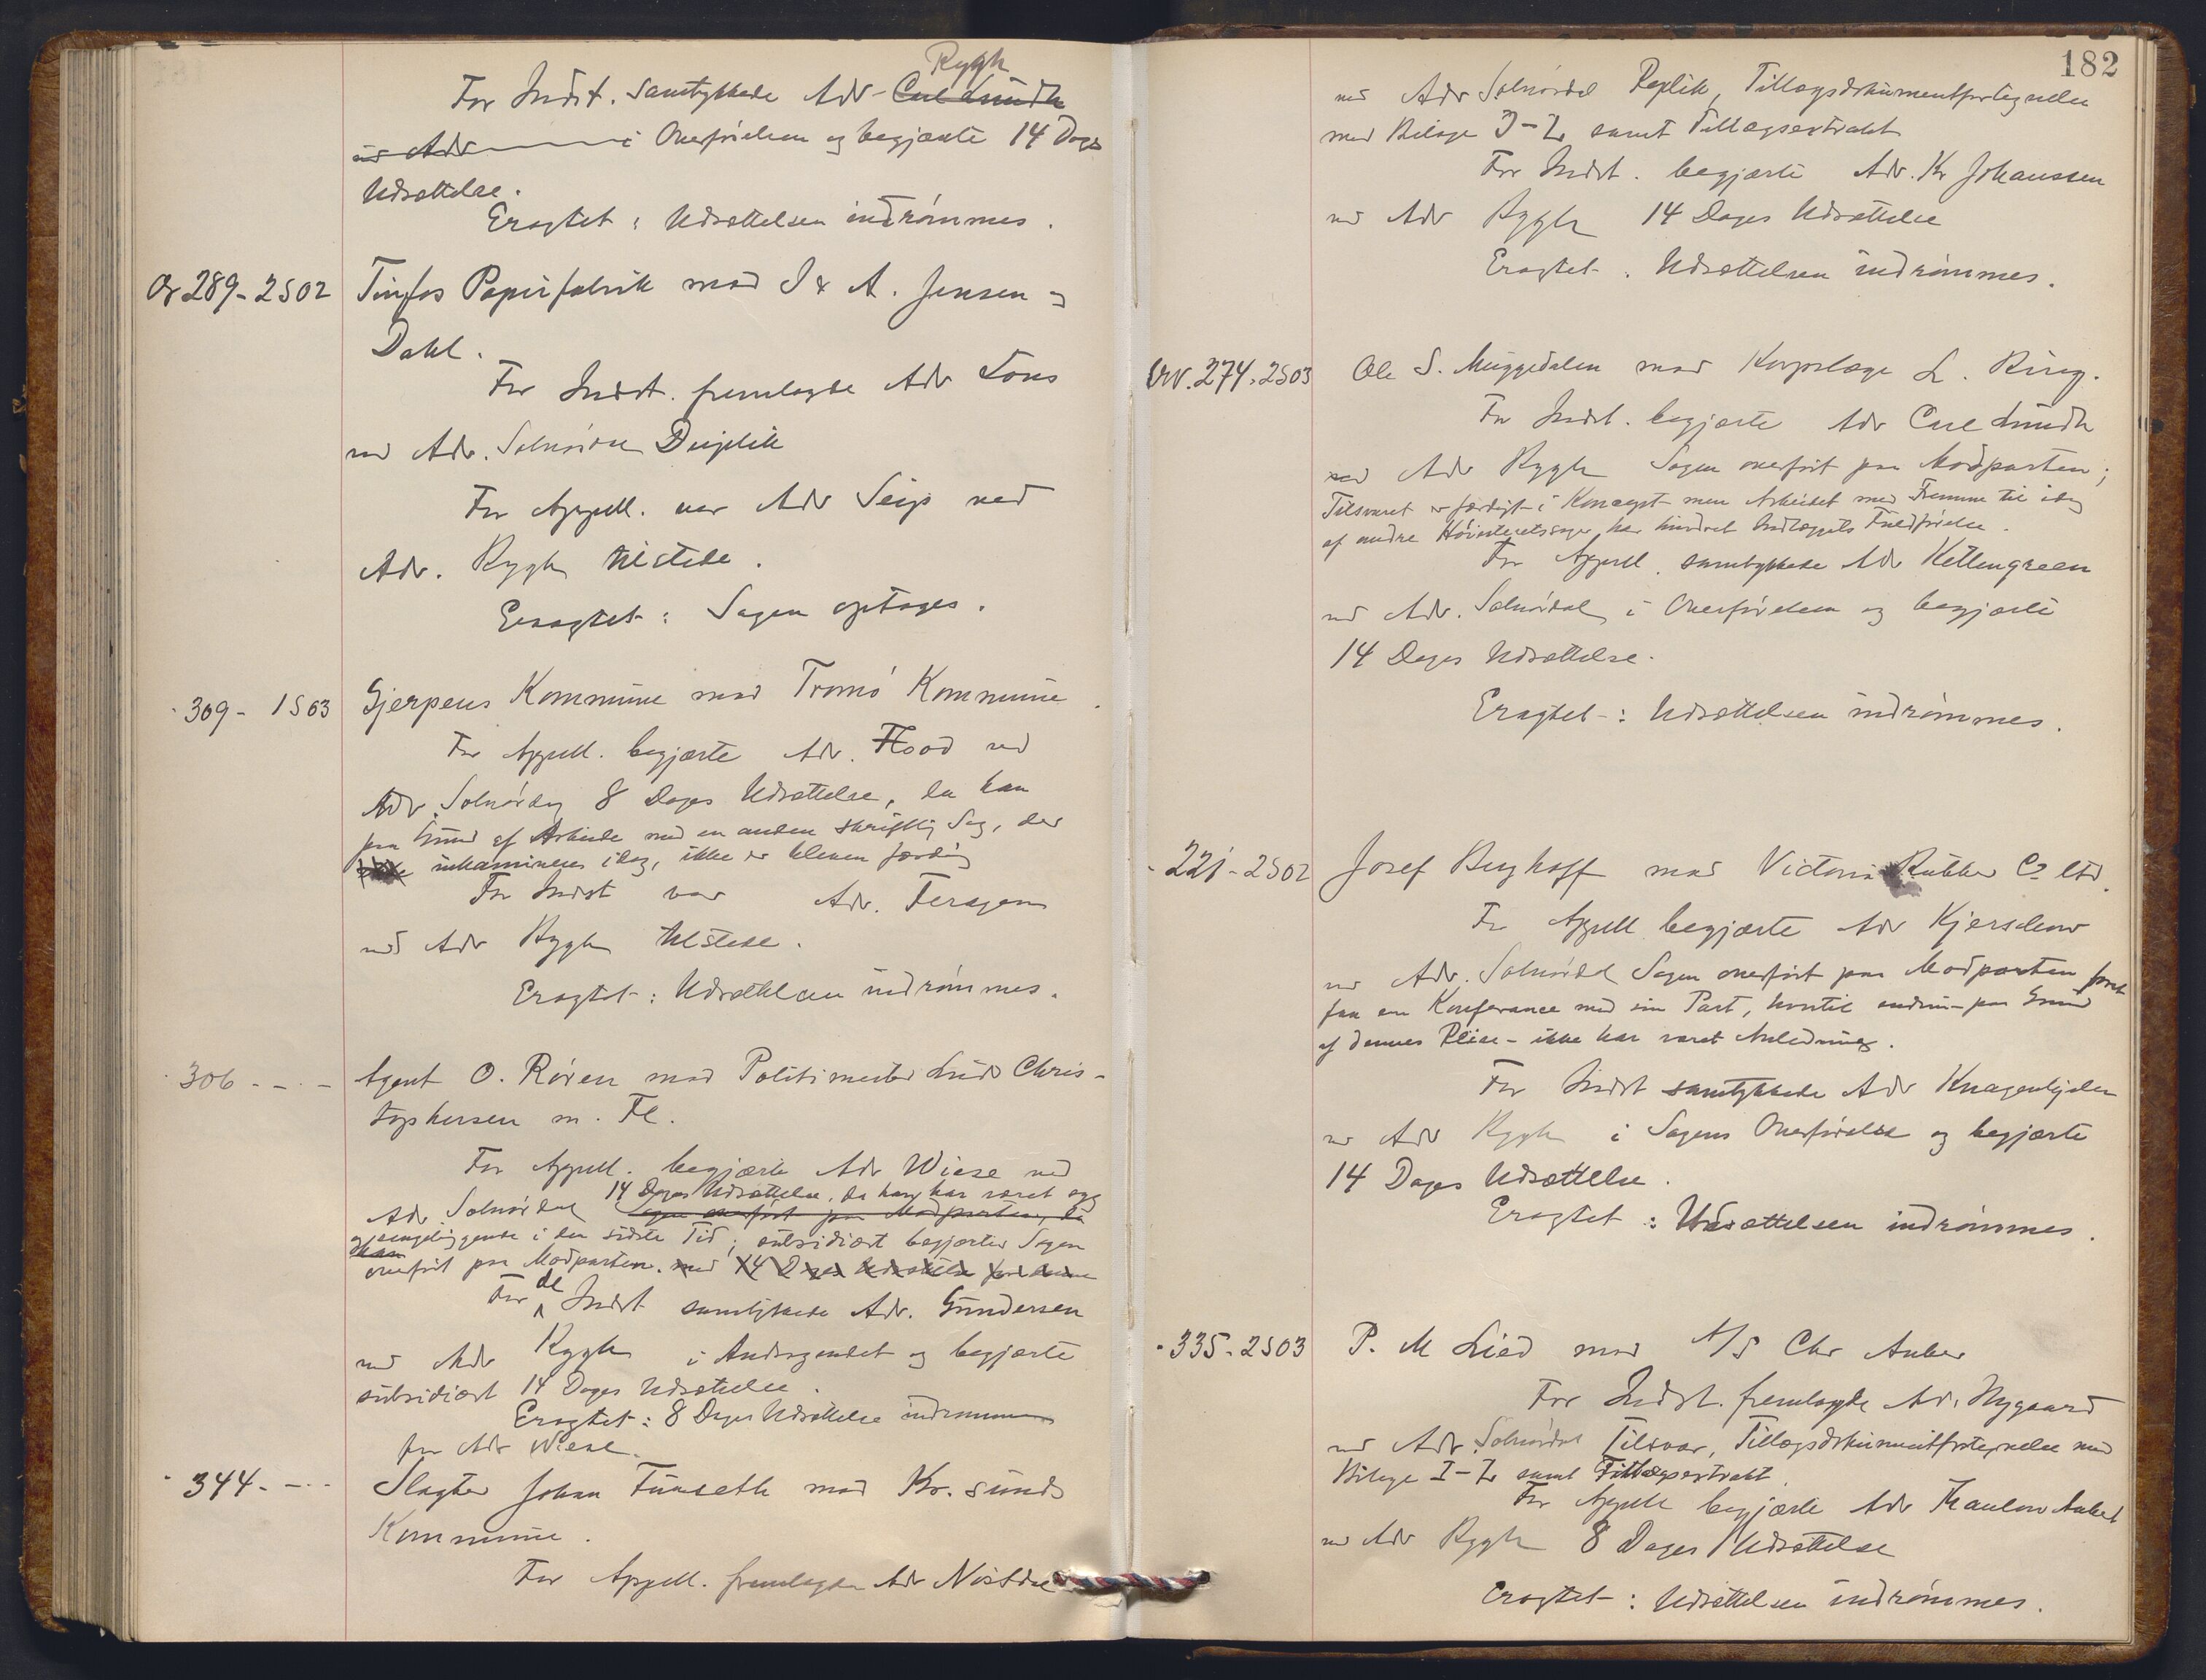 Rygh
For Indst. samtykkede Adv Carl Lundh
ved Adv i Overførelsen og begjærte 14 Dages
Udsættelse.
Eragtet: Udsættelsen indrømmes.
Or 289-2S02 Tinfos Papirfabrik mod I & A. Jensen og
Dahl.
For Indst. fremlagde Adv Lous
ved Adv. Solnørdal Duplik
For Appell. var Adv Seip ved
Adv. Rygh tilstede.
Eragtet: Sagen optages.
309 - 1S03 Gjerpens Kommune mod Tromø Kommune.
For Appell. begjærte Adv. Flood ved
Adv. Solnørdal 8 Dages Udsættelse, da han
paa Grund af Arbeide med en anden skriftlig Sag, der
inkamineres idag, ikke er bleven færdig
For Indst var Adv. Feragen
ved Adv Rygh tilstede.
Eragtet: Udsættelsen indrømmes.
306 - - - Agent O. Røren mod Politimester Lund Chris-
tophersen m. Fl.
For Appell. begjærte Adv Wiese ved
Adv Solnørdal 14 Dages Udsættelse, da han har været syg
Sagen overført paa Modparten, da
og sengeliggende i den sidste Tid; subsidiært begjærtes Sagen
han
overført paa Modparten. med 14 Dages Udsættelse for denne
For de Indst samtykkede Adv. Gundersen
ved Adv Rygh i Andragendet og begjærte
subsidiært 14 Dages Udsættelse.
Eragtet: 8 Dages Udsættelse indrømmes
for Adv Wiese.
344 - - - Slagter Johan Tunseth mod Kr. sunds
Kommune.
For Appell. fremlagde Adv Nøstdal
182
ved Adv Solnørdal Replik, Tillægsdokumentfortegnelse
med Bilage I-L samt Tillægsextrakt
For Indst. begjærte Adv. Kr Johanssen
ved Adv Rygh 14 Dages Udsættelse
Eragtet: Udsættelsen indrømmes.
Or. 274. 2S03 Ole S. Muggedalen mod Korpslæge L. Ring.
For Indst. begjærte Adv Carl Lundh
ved Adv Rygh Sagen overført paa Modparten;
Tilsvaret er færdigt i Koncept men Arbeidet med Fremme til idag
af andre Høiesteretssager har hindret Indlæggets Fuldførelse.
For Appell. samtykkede Adv Kellengreen
ved Adv. Solnørdal i Overførelsen og begjærte
14 Dages Udsættelse.
Eragtet: Udsættelsen indrømmes.
- 221 - 2S02 Josef Berghoff mod Victoria Rubber Co ltd.
For Appell begjærte Adv Kjerschow
ved Adv. Solnørdal Sagen overført paa Modparten for at
faa en Konferance med sin Part, hvortil endnu - paa Grund
af dennes Reise - ikke har været Anledning.
For Indst samtykkede Adv Knagenhjelm
ved Adv Rygh i Sagens Overførelse og begjærte
14 Dages Udsættelse.
Eragtet: Udsættelsen indrømmes.
- 335-2S03 P. M Lied mod A/S Chr Anker
For Indst. fremlagde Adv. Nygaard
ved Adv Solnørdal Tilsvar, Tillægsdokumentfortegnelse med
Bilage I-L samt Tillægsextrakt.
For Appell begjærte Adv Thaulow Aubert
ved Adv Rygh 8 Dages Udsættelse
Eragtet: Udsættelsen indrømmes.